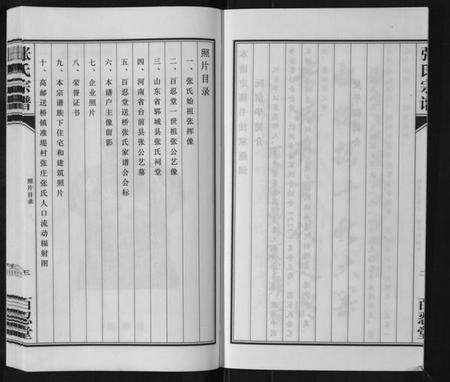 照片目录
一、张氏始祖张挥像
二、百忍堂一世祖张公艺像
三、山东省郓城县张氏祠堂
四、河南省台前县张公艺墓
五、百忍堂送桥张氏家谱会会标
六、本谱户主像留影
七、企业照片
八、荣誉证书
九、本宗谱族下住宅和建筑照片
十、高邮送桥镇准堤村张庄张氏人口流动辐射图
张氏宗谱
照片目录
三
百忍堂
张氏宗谱
二
百忍堂